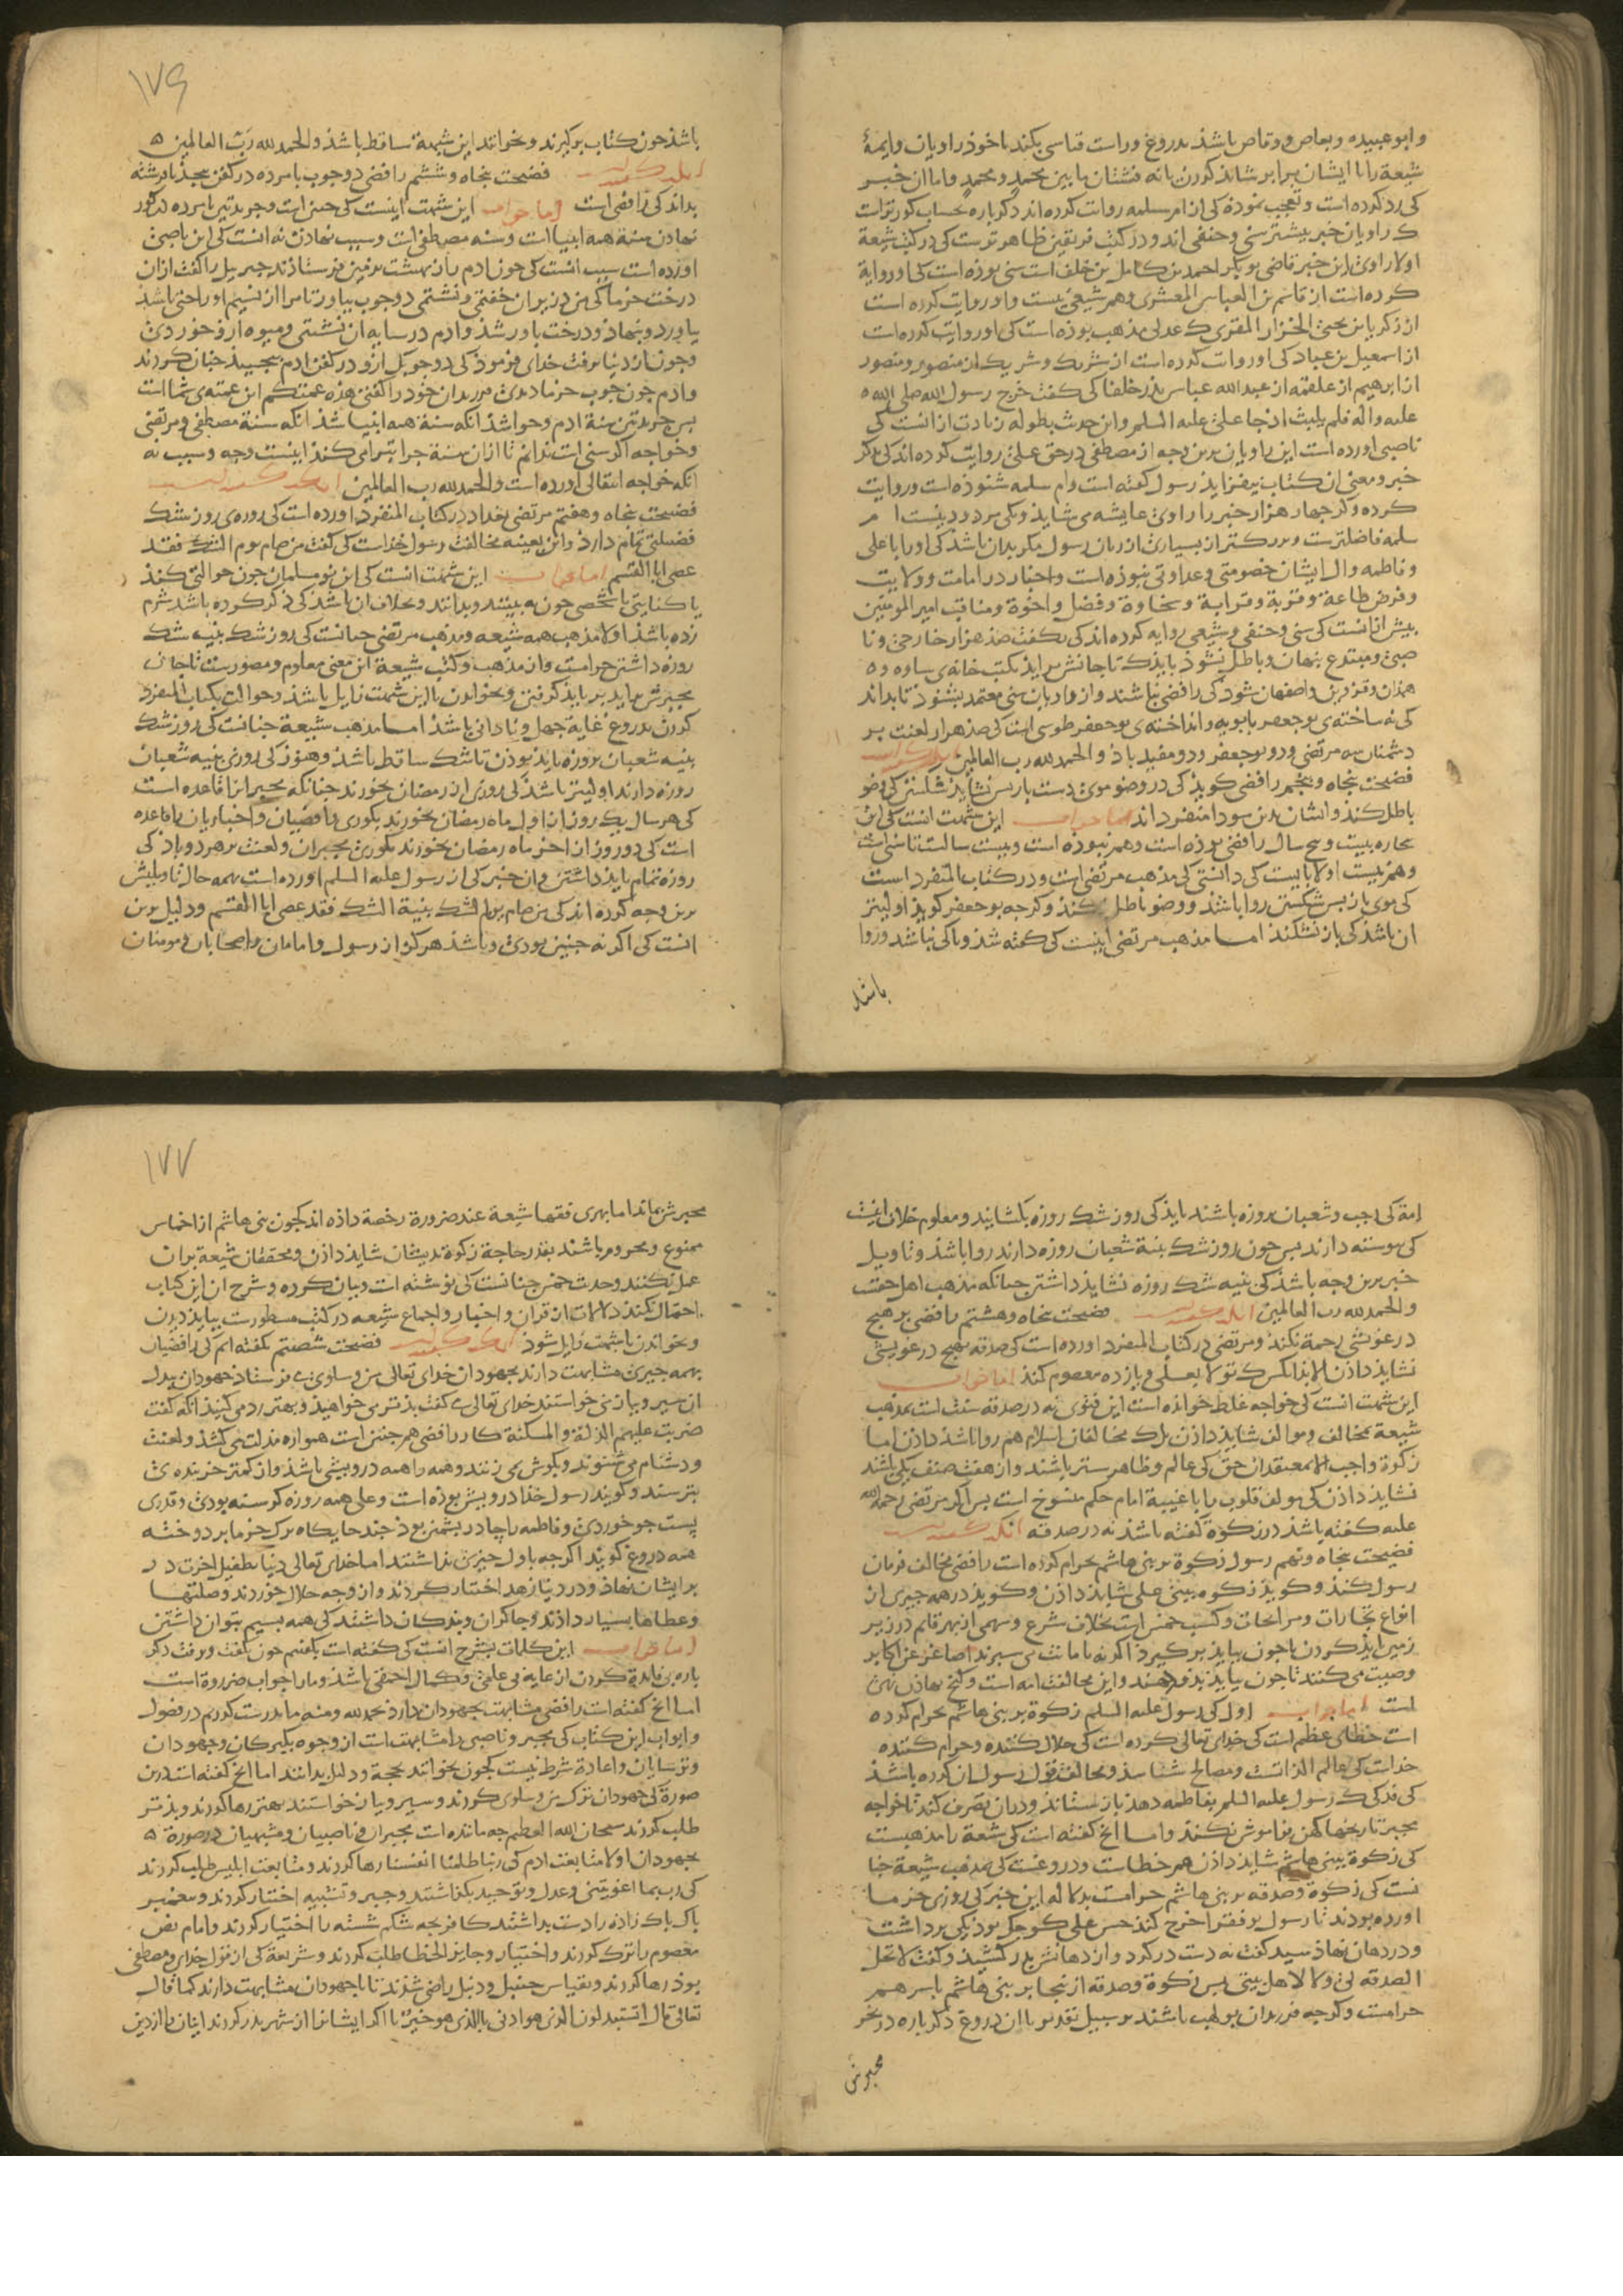 و ابو عبیده و بعاص و وقاص باشذ بدروغ وراست قیاسی بکند باخوذ راویان و ایمهٔ
شیعة را با ایشان برابر شاید کردن یا نه فشتان ما بین محمدٍ و محمدٍ و اما ان خبر
کی رد کرده است و تعجب نموذه کی از ام سلمه روایت کرده اند دکر باره بحساب کورترست
ک راویان خبر بیشتر سنی و حنفی اند و در کتب فریقین ظاهرترست کی در کتب شیعة
اولا راوی این خبر قاضی بوبکر احمد بن کامل بن خلف است سنی بوذه است کی او روایة
کرده است از قاسم بن العباس المعشری و هم شیعی نیست و او روایت کرده است
از زکریا بن یحیی الخزاز المقری ک عدلی مذهب بوذه است کی او روایت کرده است
از اسمعیل بن عباد کی او روایت کرده است از شریک و شریک از منصور و منصور
از ابرهیم از علقمه از عبد الله عباس بذر خلفا کی کفت خرج رسول الله صلی الله
علیه و اله فلم یلبث ان جا علیٌ علیه السلم و این حدیث بطوله زیادت از انست کی
ناصبی اورده است این راویان برین وجه از مصطفی در حق علی روایت کرده اند کی بدکر
خبر و معنی ان کتاب بیفزایذ رسول کفته است و ام سلمه شنوذه است و روایت
کرده و اکر جهار هزار خبر را راوی عایشه می شایذ و یکی مردود نیست ام
سلمه فاضلترست و بزرکتر از بسیاری از زنان رسول مکر بدان باشذ کی او را با علی
و فاطمه و ال ایشان خصومتی و عداوتی نبوذه است و اخبار در امامت و ولایت
و فرض طاعة و قربة و قرابة و سخاوة و فضل و اخوة و مناقب امیر المومنین
بیش از انست کی سنی و حنفی و شیعی روایه کرده اند کی بکفت صذ هزار خارجی و نا
صبی و مبتدع بنهان و باطل نشوذ بایذ ک تا جانش برایذ بکتب خانه ی ساوه و
همذان و قزوین و اصفهان شوذ کی رافضی نباشند و از راویان سنی معتمد بشنوذ تا بداند
کی نه ساخته ی بوجعفر بابویه و انداخته ی بوجعفر طوسی است کی صذ هزار لعنت بر
دشمنان سه مرتضی و دو بوجعفر و دو مفید باذ و الحمد لله رب العالمین
فضیحت بنجاه و بنجم رافضی کویذ کی در وضو موی دست باز بس نشایذ شکستن کی وضو
باطل کنذ و ایشان بدین سودا منفرد اند اما جواب این شبهت انست کی این
بیجاره بیست و بنج سال رافضی بوذه است و هم نبوذه است و بیست سالست تا سنی است
و هم نیست اولا بایست کی دانستی کی مذهب مرتضی است و در کتاب المنفرد است
کی موی باز بس شکستن روا باشذ و وضو باطل نکند و کرجه بوجعفر کویذ اولیتر
ان باشذ کی باز نشکنذ اما مذهب مرتضی اینست کی کفته شذ و باکی نباشد و روا
باشد
۱۷۶
باشذ جون کتاب برکیرند و بخوانند این شبهة ساقط باشذ و الحمد لله رب العالمین
فضیحت بنجاه و ششم رافضی دو جوب با مرده در کفن بیجذ تا فرشته
بداند کی رافضی است اما جواب این شبهت اینست کی جنین است و جریدتین با مرده در کور
نهادن سنة همه انبیا است و سنه مصطفی است و سبب نهادن نه انست کی این ناصبی
اورده است سبب انست کی جون ادم را از بهشت بزمین فرستاذند جبریل را کفت از ان
درخت خرما کی من در زیر ان خفتمی و نشستمی دو جوب بیاور تا مرا از نسیم او راحتی باشذ
بیاورد و بنهاذ و درخت باور شذ و ادم در سایه ان نشستی و میوه ازو خوردی
و جون از دنیا برفت خدای فرموذ کی دو جوب از و در کفن ادم بیجیند جنان کردند
و ادم جون جوب خرما دیدی فرزندان خود را کفتی هذه عمتکم این عمته ی شما است
بس جریدتین سنة ادم و حوا شذ انکه سنة همه انبیا شذ انکه سنة مصطفی و مرتضی
و خواجه اکر سنی است ندانم تا از ان سنة جرا تبرا می کنذ اینست وجه و سبب نه
انکه خواجه انتقالی اورده است و الحمد لله رب العالمین
فضیحت بنجاه و هفتم مرتضی بغداد در کتاب المنفرد اورده است کی روزه ی روز شک
فضیلتی تمام دارذ و این بعینه مخالفت رسول خذاست کی کفت من صام یوم الشک فقد
عصی ابا القسم اما جواب این شبهت انست کی این نو مسلمان جون حوالتی کنذ
با کتابی یا شخصی جون به بینند و بدانند و بخلاف ان باشذ کی ذکر کرده باشد شرم
زده باشذ اولا مذهب همه شیعه و مذهب مرتضی جنانست کی روز شک بنیت شک
روزه داشتن حرامست و از مذهب و کتب شیعة این معنی معلوم و مصورست تا جان
مجبرش بیاید برباید کرفتن و بخواندن تا این شبهت زایل باشذ و حوالت بکتاب المنفرد
کردن بدروغ غایة جهل و نادانی باشذ اما مذهب شیعة جنانست کی روز شک
بنیه شعبان بروزه باید بوذن تا شک ساقط باشذ و هنوز کی روزی بنیه شعبان
روزه دارند اولیتر باشذ کی روزی از رمضان بخورند جنانکه مجبران را قاعده است
کی هر سال یک روز از اول ماه رمضان بخورند بکوری رافضیان و اخباریان را قاعده
است کی دو روز از اخر ماه رمضان بخورند بکوری مجبران و لعنت بر هر دو باد کی
روزه تمام بایذ داشتن و ان خبر کی از رسول علیه السلم اورده است بهمه حال تاویلش
برین وجه کرده اند کی من صام یوم الشک بنیة الشک فقد عصی ابا القسم و دلیل برین
انست کی اکر نه جنین بودی و باشذ هرکز از رسول و امامان و اصحابان و مومنان
امة کی رجب و شعبان بروزه باشند باید کی روز شک روزه بکشایند و معلوم خلاف اینست
کی بیوسته دارند بس جون روز شک بنیة شعبان روزه دارند روا باشذ و تاویل
خبر برین وجه باشذ کی بنیه شک روزه نشایذ داشتن جنانکه مذهب اهل حقست
و الحمد لله رب العالمین فضیحت بنجاه و هشتم رافضی بر هیج
درغوشی رحمة نکنذ و مرتضی در کتاب المنفرد اورده است کی صدقه بهیج درغویشی
نشایذ داذن الا بذانکس ک تولا بعلی و یازده معصوم کند اما جواب
این شبهت انست کی خواجه غلط خوانده است این فتوی نه در صدقه سنت است بمذهب
شیعة بمخالف و موالف شایذ داذن بلک مخالفان اسلام هم روا باشذ داذن اما
زکوة واجب الا بمعتقدان حق کی عالم و ظاهر ستر باشند و از هشت صنف یکی باشند
نشایذ داذن کی مولف قلوب را با غیبة امام حکم منسوخ است بس اکر مرتضی رحمة الله
علیه کفته باشذ در زکوة کفته باشذ نه در صدقه
فضیحت بنجاه و نهم رسول زکوة بر بنی هاشم بحرام کرده است رافضی مخالف فرمان
رسول کنذ و کویذ زکوه ببنی علی شایذ داذن و کویذ در همه جیزی از
انواع تجارات و مرابحات و کسب خمس است بخلاف شرع و سهمی از بهر قایم در زیر
زمین ایذ کردن تا جون بیایذ برکیرد اکر نه بامانت می سبرند اصاغر عن اکابر
وصیت می کنند تا جون بیایذ بذو دهند و این مخالفت امه است و کنج نهاذن نهی
است اما جواب اول کی رسول علیه السلم زکوة بر بنی هاشم بحرام کرده
است خطای عظیم است کی خدای تعالی کرده است کی حلال کننده و حرام کننده
خداست کی عالم الذاتست و مصالح شناسد و مخالفت قول رسول ان کرده باشذ
کی فدکی ک رسول علیه السلم بفاطمه دهذ باز بستاند و در ان تصرف کند تا خواجه
مجبر تاریخهای کهن فراموش نکند و اما انج کفته است کی شیعة را مذهبست
کی زکوة ببنی هاشم شایذ داذن هم خطاست و دروغست کی بمذهب شیعة جنا
نست کی زکوة و صدقه بر بنی هاشم حرامست بدلاله این خبر کی روزی خرما
اورده بودند تا رسول بر فقرا خرج کند حسن علی کوجک بوذ یکی برداشت
و در دهان نهاذ سید کفت نه دست در کرد و از دهانش بدر کشیذ و کفت لا تحل
الصدقه لی و لا لاهل بیتی بس زکوة و صدقه از ینجا بر بنی هاشم باسرهم
حرامست و کرجه فرزندان بولهب باشند بر سبیل تقدیر با ان دروغ دکر باره در نحر
مجبرش
۱۷۷
مجبرش بماند اما بهری فقها شیعة عند ضرورة رخصة داذه اند کجون بنی هاشم از اخماس
ممنوع و محروم باشند بقدر حاجة زکوة بدیشان شایذ داذن و محققان شیعة بر ان
عمل نکنند و حدیث خمس جنانست کی نوشته است و بیان کرده و شرح ان این کتاب
احتمال نکند دلالات از قران و اخبار و اجماع شیعه در کتب مسطورست بباید دیدن
و بخواندن تا شبهت زایل شوذ فضیحت شصتم کفته ام کی رافضیان
بهمه جیزی مشابهت دارند بجهودان خدای تعالی من و سلوی می فرستاذ جهودان بدل
ان سیر و بیاز می خواستند خدای تعالی می کفت بذتر می خواهیذ و بهتر رد می کنیذ انکه کفت
ضربت علیهم الذلة و المسکنة کار رافضی هم جنین است همواره مذلت می کشذ و لعنت
و دشنام می شنوند و بکوش می زنند و همه را همه درویشی باشذ و از کمتر خربنده ی
بترسند و کویند رسول خذا درویش بوذه است و علی همه روزه کرسنه بودی و قدری
بست جو خوردی و فاطمه را جادر بشمین بوذ جند جایکاه برک خرما بر دوخته
همه دروغ کویند اکرجه باول جیزی نداشتند اما خدای تعالی دنیا بطفیل اخرت در
بر ایشان نهاذ و در دنیا زهد اختیار کردند و از وجه حلال خوردند و صلتها
و عطاها بسیار داذند و جاکران و بندکان داشتند کی همه بسیم بتوان داشتن
اما جواب این کلمات بشرح انست کی کفته است باغتنم جون بکفت و برفت دکر
باره بی فایدة کردن از غایه بی علمی و کمال احمقی باشذ و ما را جواب ضرورة است
اما انج کفته است رافضی مشابهت بجهودان دارد بحمد لله و منه ما بدرست کردیم در فصول
و ابواب این کتاب کی مجبر و ناصبی را مشابهت است از وجوه بکبرکان و جهودان
و ترسایان و اعادة شرط نیست کجون بخوانند بحجة و دلیل بدانند اما انج کفته است درین
صورة کی جهودان ترک من و سلوی کردند و سیر و بیاز خواستند بهتر رها کردند و بذتر
طلب کردند سبحان الله العظیم جه ماننده است بجبران و ناصبیان و مشبهیان در صورة
بجهودان اولا متابعت ادم کی ربنا ظلمنا انفسنا رها کردند و متابعت ابلیس طلب کردند
کی رب بما اغویتنی و عدل و توحید بکذاشتند و جبر و تشبیه اختیار کردند و بیغمبر
باک باک زاده را دست بداشتند کافر بجه شکم شسته را اختیار کردند و امام نص
معصوم را ترک کردند و اختیار و جایز الخطا طلب کردند و شریعة کی از قول خدا و مصطفی
بوذ رها کردند و بقیاس حنبل و دنبل راضی شذند تا با جهودان مشابهت دارند کما قال
تعالی قال اتستبدلون الذی هو ادنی بالذی هو خیر تا اکر ایشان را از شهر بدر کردند اینان را از دین